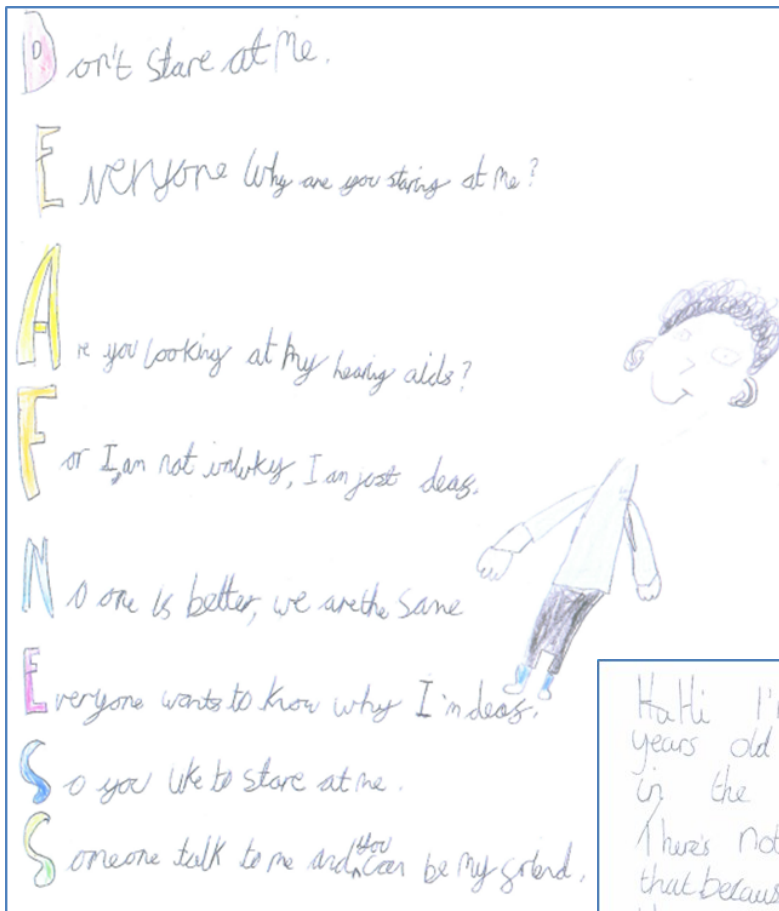 Don't stare at me.
Everyone Why are you staring at me?
Are you looking at my hearing aids?
For I am not unluky, I am just deaf.
No one is better, we are the same
Everyone wants to know why I'm deaf.
So you like to stare at me.
Someone talk to me and you can be my friend.
HaHi I'
years old
in the
There's not
that becaus